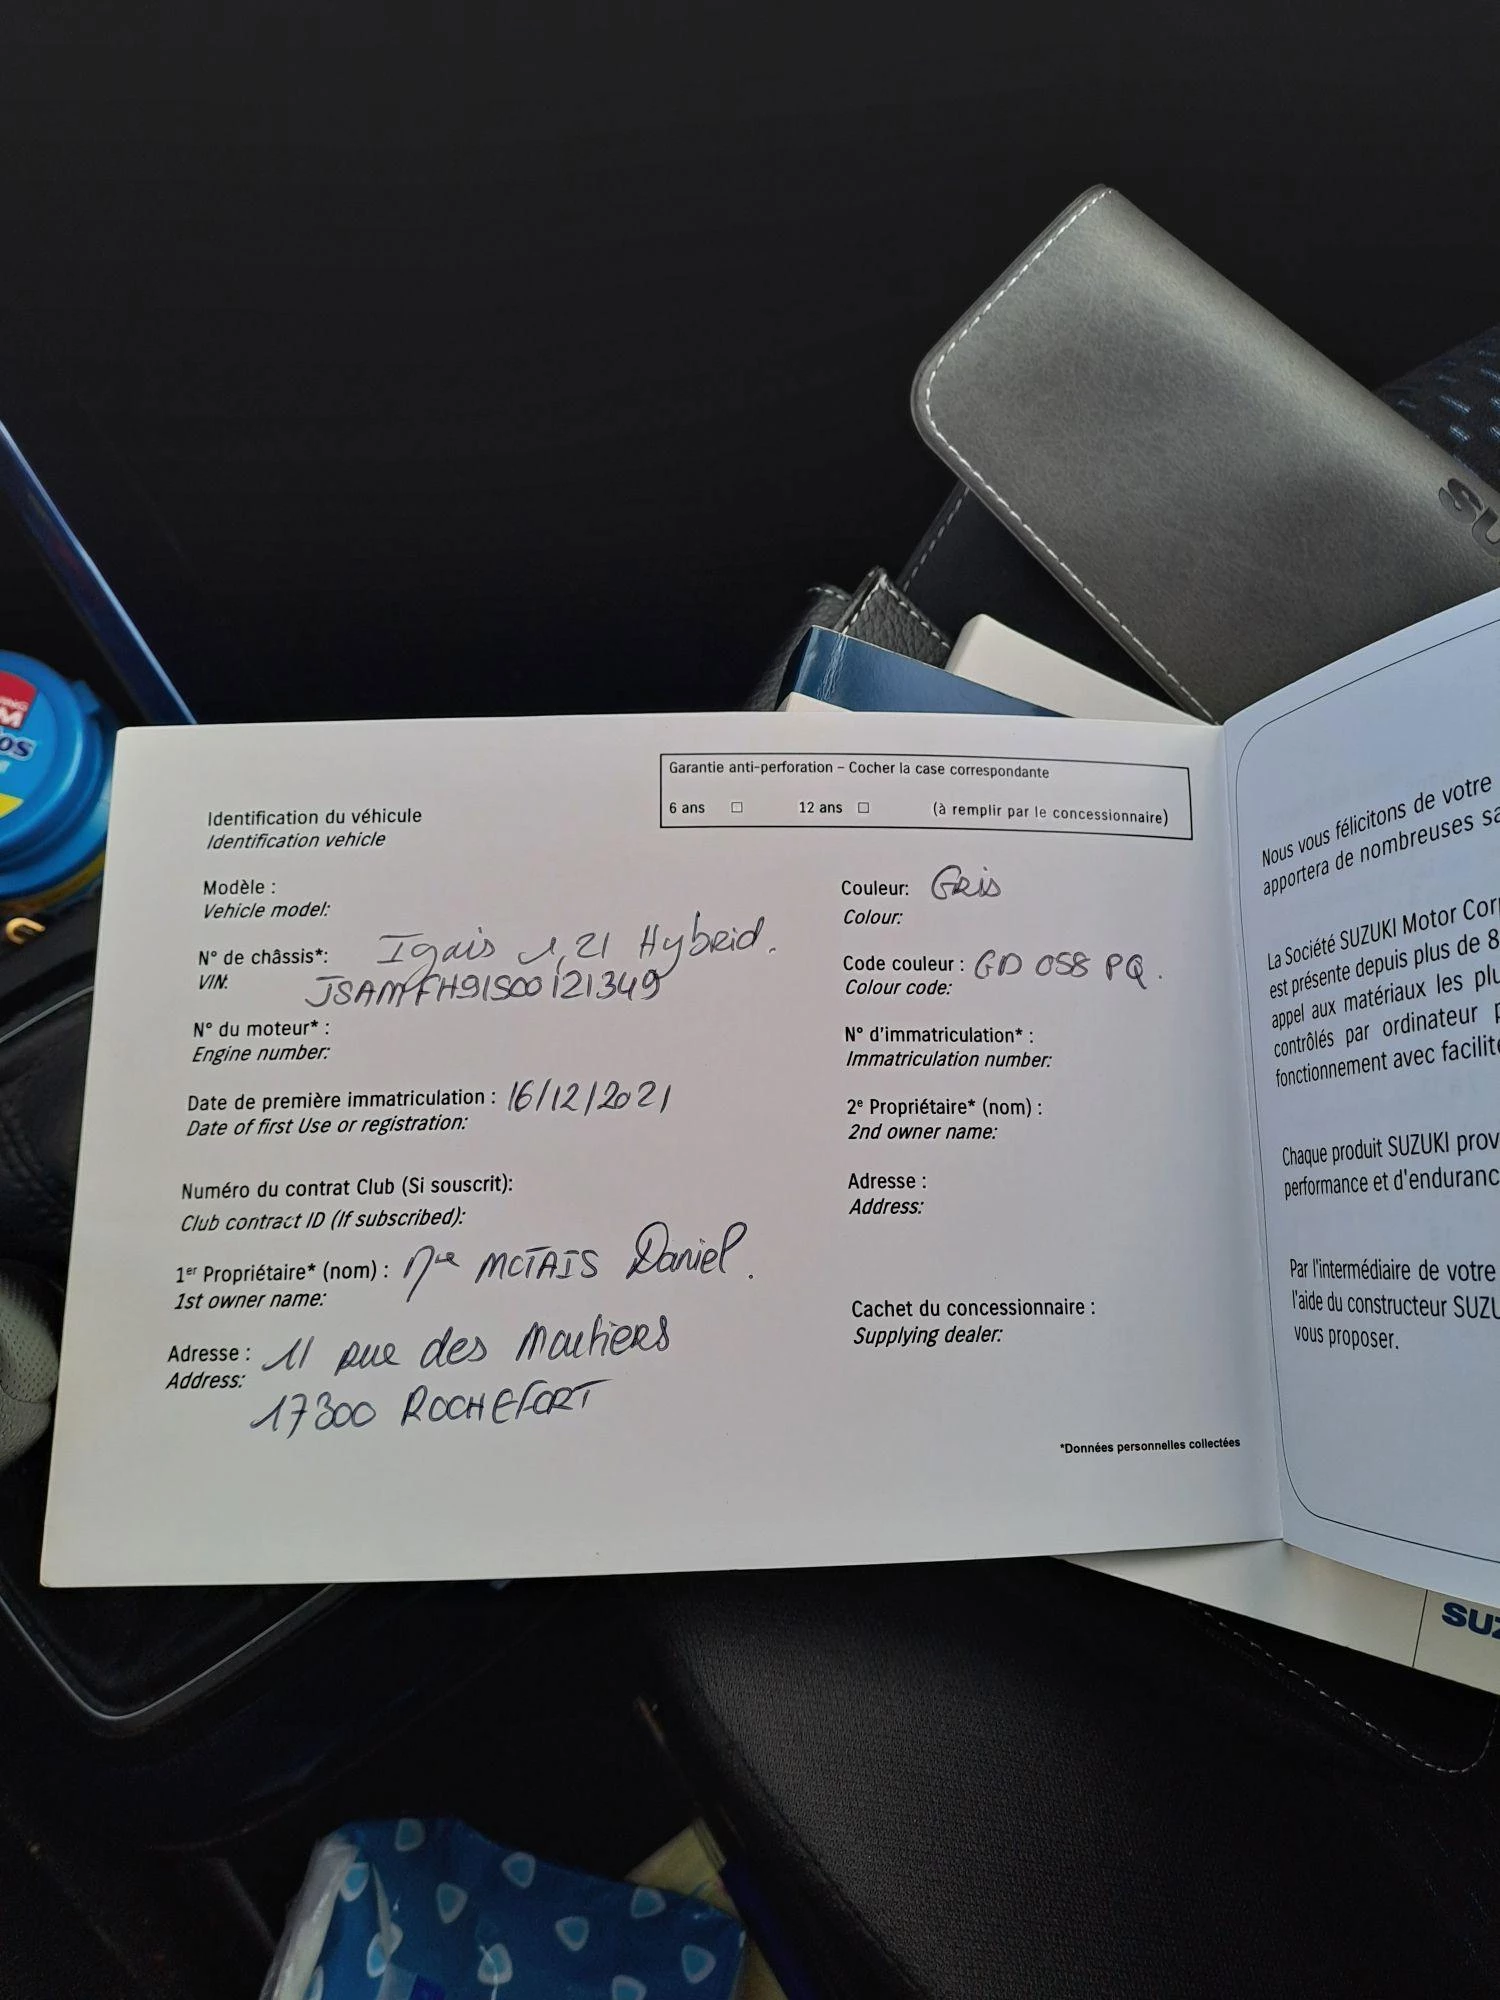 Garantie anti-perforation – Cocher la case correspondante
6 ans ☐ 12 ans ☐ (à remplir par le concessionnaire)
Identification du véhicule
Identification vehicle
Modèle :
Vehicle model:
N° de châssis*: Igais 1,21 Hybrid.
VIN: JSAMFH91S00121349
N° du moteur* :
Engine number:
Date de première immatriculation : 16/12/2021
Date of first Use or registration:
Numéro du contrat Club (Si souscrit):
Club contract ID (If subscribed):
1er Propriétaire* (nom) : Daniel.
1st owner name:
Adresse : 11 rue des
Address: 17300 ROCHEFORT
Couleur: Gris
Colour:
Code couleur : GD 058 PQ.
Colour code:
N° d'immatriculation* :
Immatriculation number:
2e Propriétaire* (nom) :
2nd owner name:
Adresse :
Address:
Cachet du concessionnaire :
Supplying dealer:
*Données personnelles collectées
Nous vous félicitons de votre
apportera de nombreuses
La Société SUZUKI Motor
est présente depuis plus de
appel aux matériaux les
contrôlés par ordinateur
fonctionnement avec
Chaque produit SUZUKI
performance et
Par l'intermédiaire de votre
l'aide du constructeur
vous proposer.